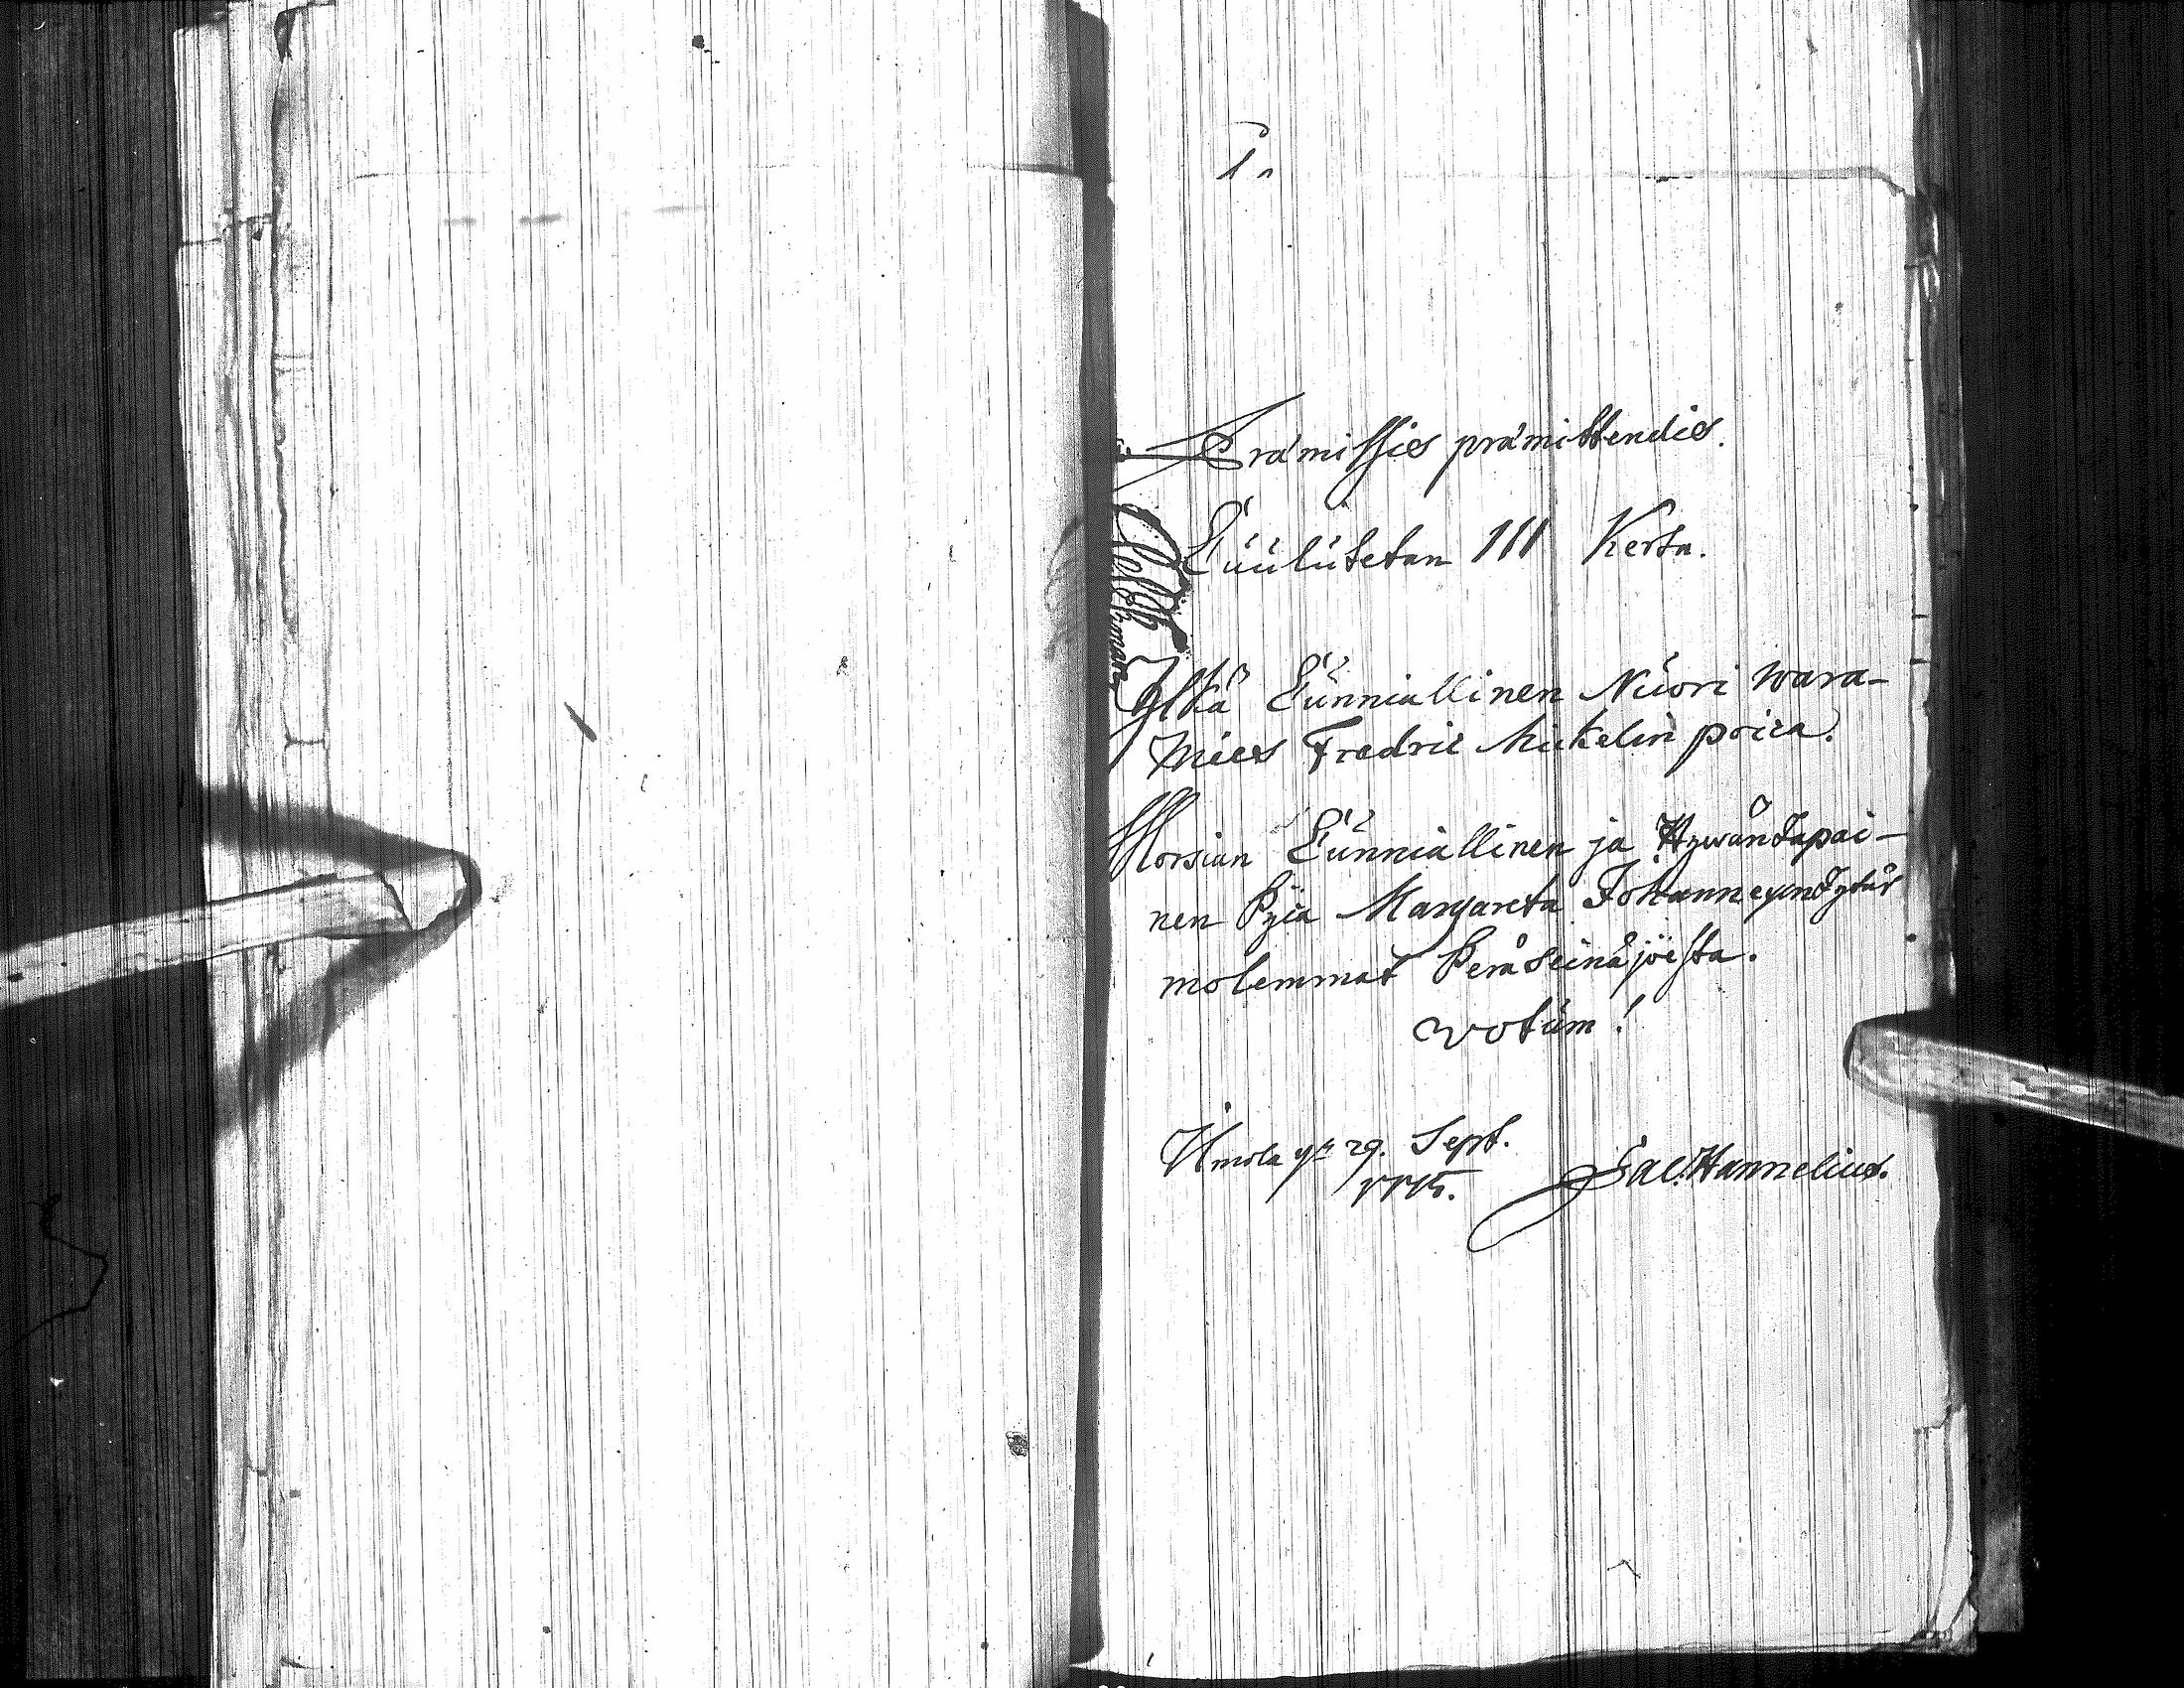 1.
Præmissis præmittendis.
Cuulutetan III Kerta.
Yltä Cunniallinen Nuori wara-
Mies Fredric Mickelin poica.
Morsian Cunniallinen ja Hywäntapai-
nen Pijca Margareta Johannexen Tytär
molemmat Peräseinäjoesta.
Votum!
Ilmola 29. Sept.
Jac. Hannelius.